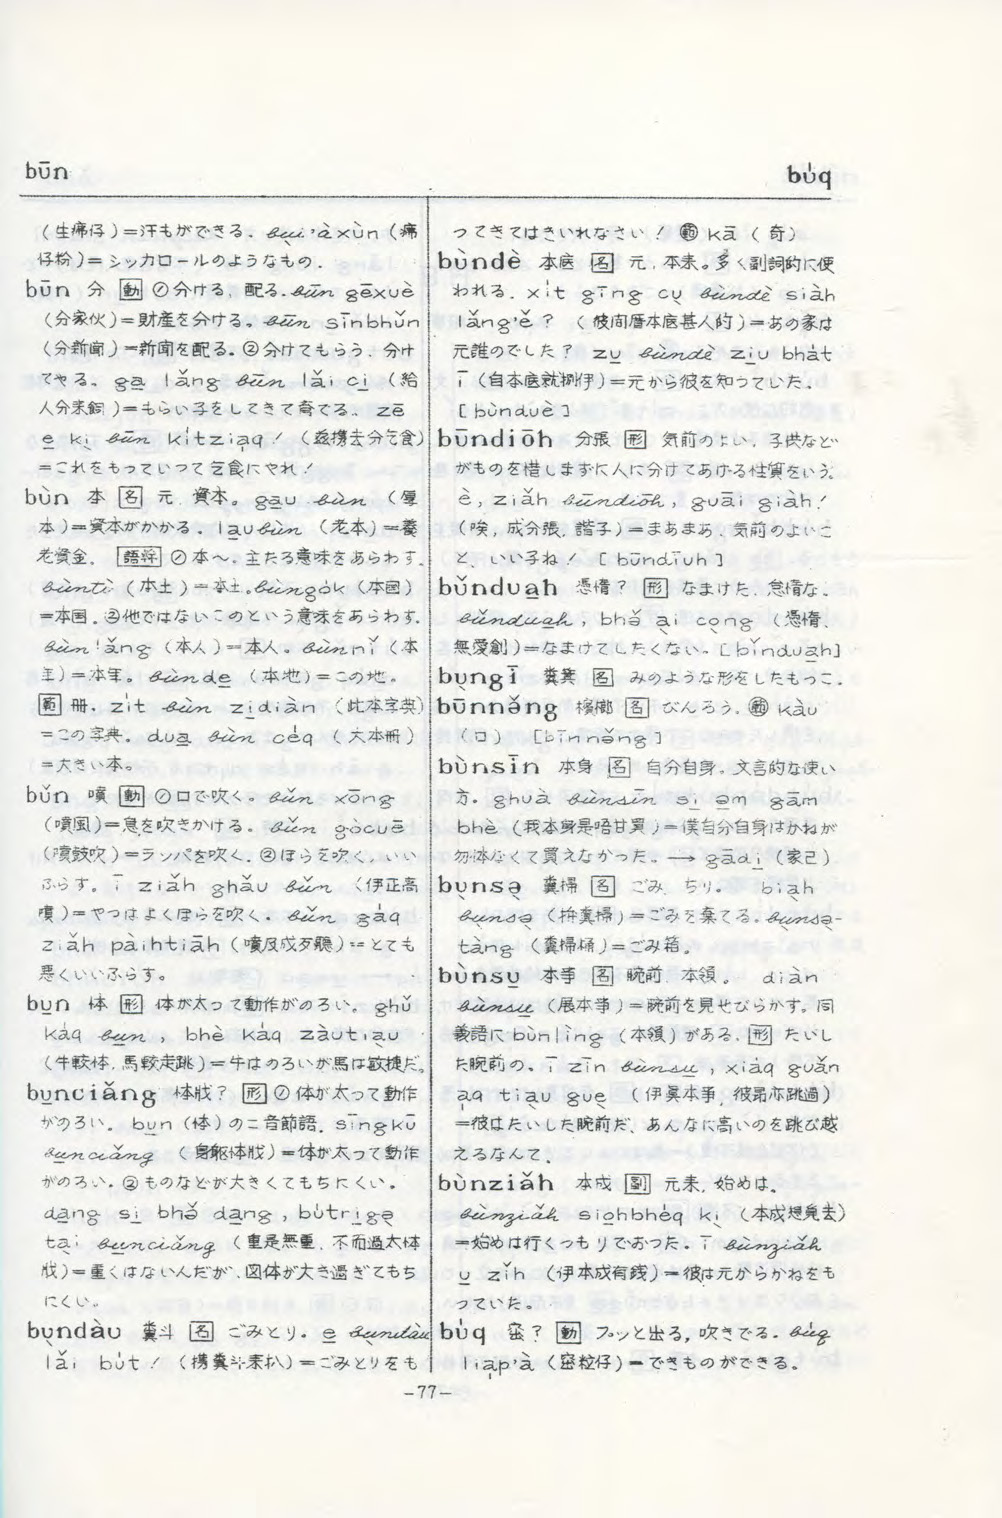 būn
bu̍q
(生痱仔)=汗もができる. bui'àxùn (痱
仔粉)=シッカロールのようなもの.
būn 分 動 ①分ける, 配る. būn gēxuè
(分家伙)=財産を分ける。būn sīnbhŭn
(分新聞)=新聞を配る. ②分けてもらう, 分け
てやる. ga̱ lăng būn lăi ci̱ (給
人分来飼)=もらい子をしてきて育てる. zē
e̱ ki̱ būn kı̍tzia̱q! (這携去分乞食)
=これをもっていって乞食にやれ!
bùn 本 名 元, 資本。ga̱u bùn (厚
本)=資本がかかる. la̱ubùn (老本)=養
老資金. 語幹 ①本~, 主たる意味をあらわす.
bùntò (本土)=本土. bùngo̍k (本国)
=本国. ②他ではないこのという意味をあらわす.
bùn'lăng (本人)=本人。bùnnĭ (本
年)=本年。bùnde̱ (本地)=この地。
範 冊. zı̍t bùn zi̱diàn (此本字典)
=この字典. dua̱ bùn cėq (大本冊)
=大きい本。
bŭn 噴 動 ①口で吹く。bŭn xōng
(噴風)=息を吹きかける。bŭn gòcuē
(噴鼓吹)=ラッパを吹く. ②ほらを吹く, いい
ふらす。ī ziăh ghău bŭn (伊正高
噴)=やつはよくほらを吹く. bŭn gȧq
ziăh pàihtiāh (噴及成歹聽)=とても
悪くいいふらす。
bu̱n 体 形 体が太って動作がのろい。ghŭ
kȧq bu̱n, bhè kȧq zàutiau
(牛較体, 馬較走跳)=牛はのろいが馬は敏捷だ。
bu̱nciăng 体戕? 形 ①体が太って動作
がのろい. bu̱n (体) の二音節語. sīngkū
bu̱nciăng (身躯体戕)=体が太って動作
がのろい. ②ものなどが大きくてもちにくい.
da̱ng si̱ bhŏ da̱ng, bu̍trigə̱
ta̍i bu̱nciăng (重是無重, 不而過太体
戕)=重くはないんだが, 図体が大き過ぎてもち
にくい。
bu̱ndàu 糞斗 名 ごみとり. e̱ bu̱ndàu
lăi bu̍t! (携糞斗来扒)=ごみとりをも
ってきてはきいれなさい! 範 kā (奇)
bùndè 本底 名 元, 本来。多く副詞的に使
われる. xı̍t gīng cu̱ bùndè siăh
lăng'ĕ? (彼間厝本底甚人的)=あの家は
元誰のでした? zu̱ bùndè zi̱u bhat
ī (自本底就捌伊)=元から彼を知っていた.
[bùnduè]
būndiōh 分張 形 気前のよい, 子供など
がものを惜しまずに人に分けてあげる性質をいう.
è, ziăh būndiōh, guāi giàh!
(唉, 成分張, 諧子)=まあまあ, 気前のよいこ
と, いい子ね! [būndiuh]
bŭndua̱h 憑惰? 形 なまけた, 怠惰な.
bŭndua̱h, bhŏ a̍i co̱ng (憑惰,
無愛創)=なまけてしたくない. [bĭndua̱h]
bu̱ngī 糞箕 名 みのような形をしたもっこ.
būnnə̆ng 檳榔 名 びんろう。範 kàu
(口) [bīnnə̆ng]
bùnsīn 本身 名 自分自身. 文言的な使い
方. ghuà bùnsīn si̱ ə̱m gām
bhè (我本身是唔甘買)=僕自分自身はかねが
勿体なくて買えなかった. → gādi̱ (家己)
bu̱nsə̱ 糞掃 名 ごみ, ちり。biah
bu̱nsə̱ (拚糞掃)=ごみを棄てる. bu̱nsə̱-
tàng (糞掃桶)=ごみ箱。
bùnsu̱ 本事 名 腕前, 本領。diàn
bùnsu̱ (展本事)=腕前を見せびらかす. 同
義語に bùnlìng (本領) がある. 形 たいし
た腕前の. ī zīn bùnsu̱, xiȧq guăn
a̱q tia̍u gu̍e (伊眞本事, 彼昂亦跳過)
=彼はたいした腕前だ, あんなに高いのを跳び越
えるなんて.
bùnziăh 本成 副 元来, 始めは.
bùnziăh siohbhe̍q ki̱ (本成想覓去)
=始めは行くつもりであった. ī bùnziăh
u̱ zĭh (伊本成有銭)=彼は元からかねをも
っていた。
bu̍q 窋? 動 プッと出る, 吹きでる. bu̍q
lia̍p'à (窋粒仔)=できものができる。
-77-